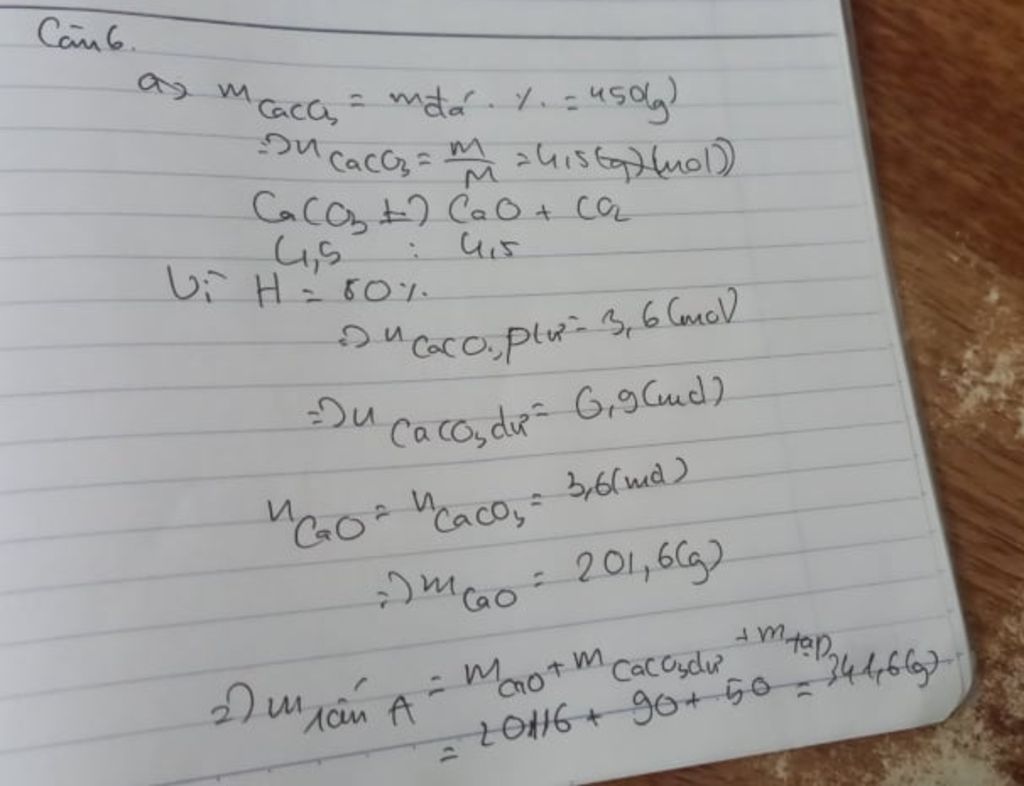 Câu 6.
a, m CaCO3 = mđá . % = 450(g)
=> n CaCO3 = m/M = 4,5 (mol)
CaCO3 t-> CaO + CO2
4,5 : 4,5
Vì H = 80%
=> n CaCO3 pứ = 3,6 (mol)
=> n CaCO3 dư = 0,9 (mol)
n CaO = n CaCO3 = 3,6 (mol)
=> m CaO = 201,6 (g)
=> m rắn A = m CaO + m CaCO3 dư + m tạp
= 201,6 + 90 + 50 = 341,6 (g)